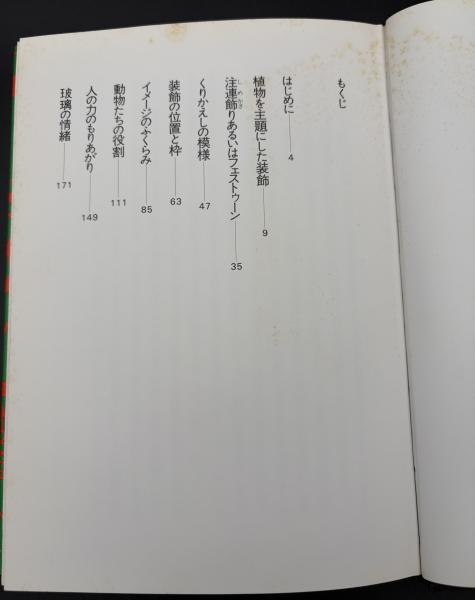 もくじ
はじめに――4
植物を主題にした装飾――9
注連飾りあるいはフェストゥーン――35
しめかざ
くりかえしの模様――47
装飾の位置と枠――63
イメージのふくらみ――85
動物たちの役割――111
人の力のもりあがり――149
玻璃の情緒――171